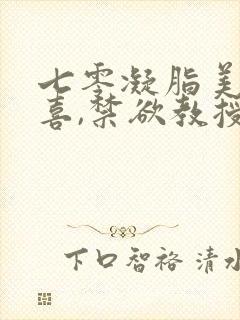 七零凝脂美
喜,禁欲教授
下口智裕 清水